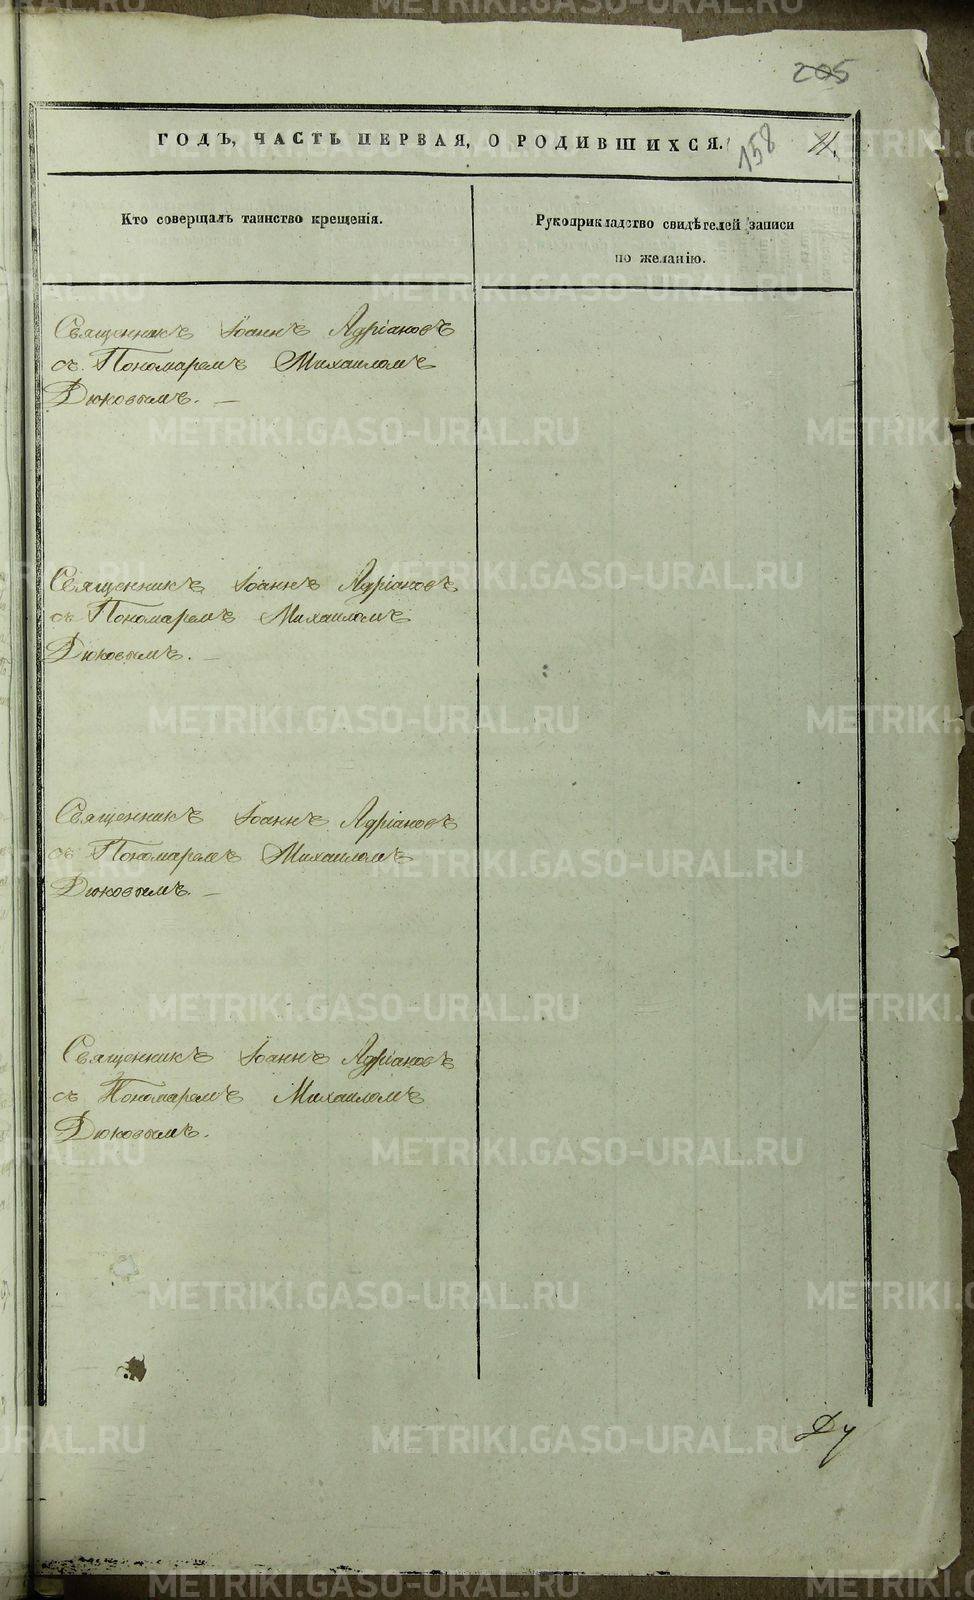 205
ГОДЪ, ЧАСТЬ ПЕРВАЯ, О РОДИВШИХСЯ.
158
Кто совершалъ таинство крещенія.
Рукоприкладство свидѣтелей записи
по желанію.
Священникъ Іоаннъ Адріановъ
съ Пономаремъ Михаиломъ
Дюковымъ. —
Священникъ Іоаннъ Адріановъ
съ Пономаремъ Михаиломъ
Дюковымъ. —
Священникъ Іоаннъ Адріановъ
съ Пономаремъ Михаиломъ
Дюковымъ. —
Священникъ Іоаннъ Адріановъ
съ Пономаремъ Михаиломъ
Дюковымъ.
METRIKI.GASO-URAL.RU